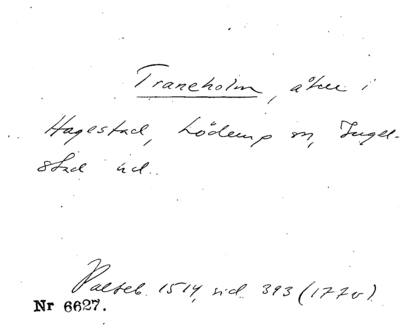 Traneholm, åker i
Hagestad, Löderup sn, Ingel-
stad hd.
Palteb. 1514, sid. 393 (177v)
Nr 6627.